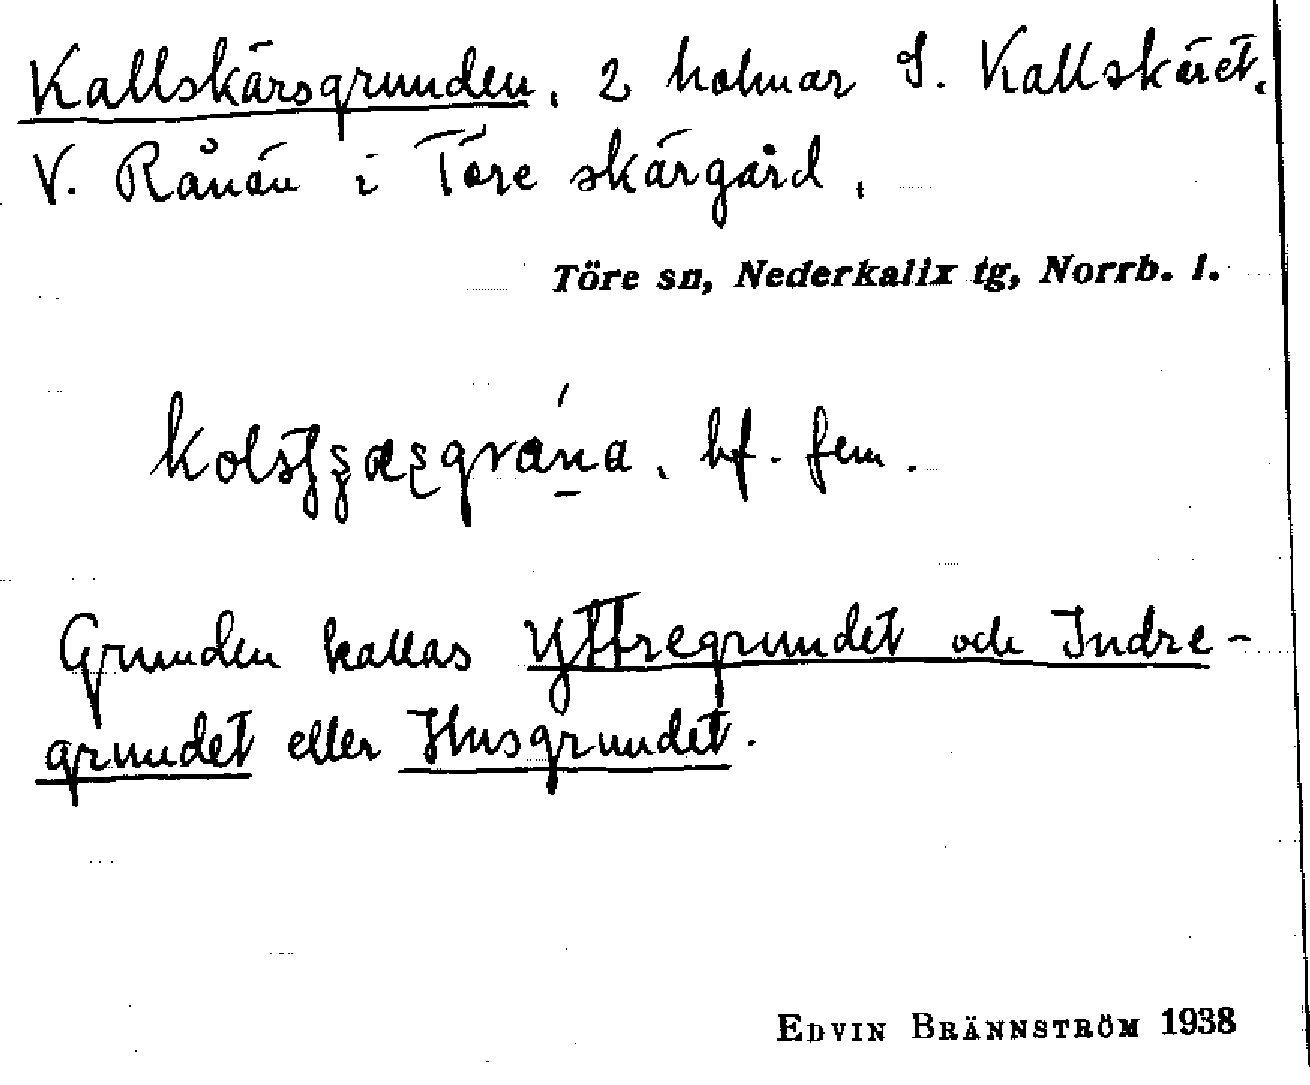 Kallskärsgrunden, 2 holmar S. Kallskäret,
V. Rånön i Töre skärgård,
Töre sn, Nederkalix tg, Norrb. l.
bf. fem.
Grunden kallas Yttregrundet och Indre-
grundet eller Husgrundet.
EDVIN BRÄNNSTRÖM 1938